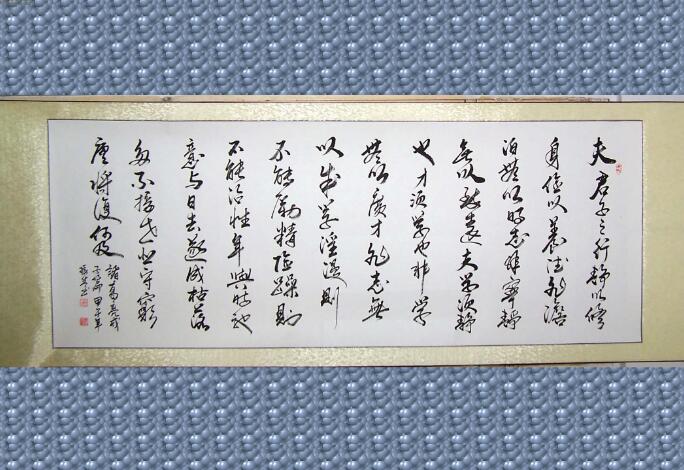 夫君子之行靜以修
身儉以養德非澹
泊無以明志非寧靜
無以致遠夫學須靜
也才須學也非學
無以廣才非志無
以成學淫漫則
不能勵精險躁則
不能治性年與時馳
意與日去遂成枯落
多不接世悲守窮
廬將復何及
諸葛亮戒
子篇 甲子年